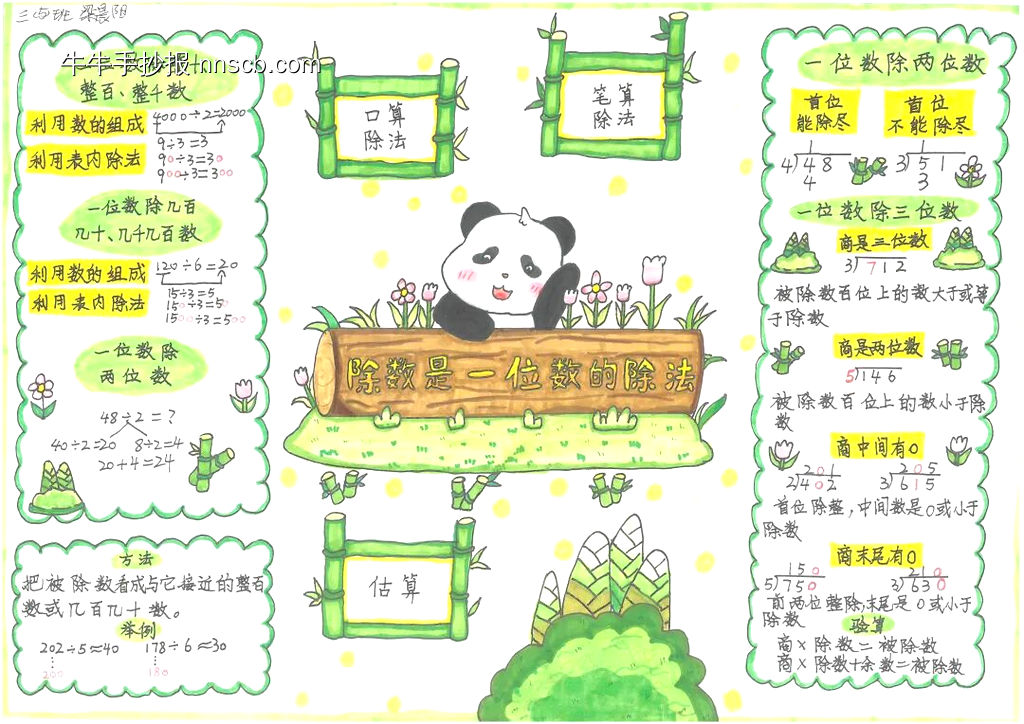 三(5)班 梁晨阳
牛牛手抄报-nnscb.com
整百、整千数
利用数的组成
4000÷2=2000
利用表内除法
9÷3=3
90÷3=30
900÷3=300
一位数除几百
几十、几千几百数
利用数的组成
120÷6=20
利用表内除法
15÷3=5
150÷3=50
1500÷3=500
一位数除
两位数
48÷2=?
40÷2=20 8÷2=4
20+4=24
方法
把被除数看成与它接近的整百
数或几百几十数。
举例
202÷5≈40 178÷6≈30
200 180
口算
除法
笔算
除法
除数是一位数的除法
估算
一位数除两位数
首位
能除尽
首位
不能除尽
1
4)48
4
1
3)51
3
一位数除三位数
商是三位数
3)712
被除数百位上的数大于或等
于除数
商是两位数
5)146
被除数百位上的数小于除
数
商中间有0
201
2)402
205
3)615
首位除整,中间数是0或小于
除数
商末尾有0
150
5)750
210
3)630
前两位整除,末尾是0或小于
除数
验算
商×除数=被除数
商×除数+余数=被除数